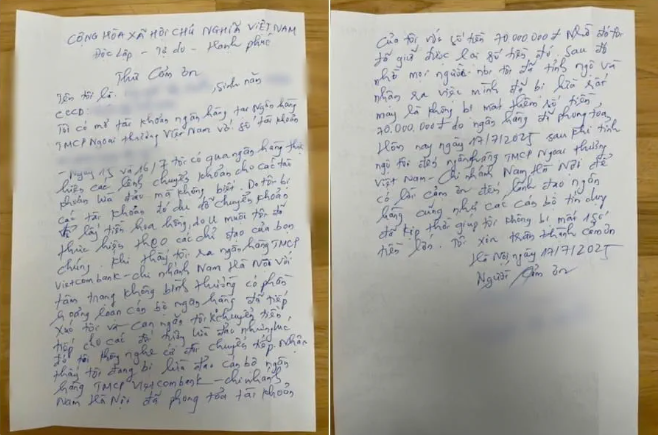 CỘNG HÒA XÃ HỘI CHỦ NGHĨA VIỆT NAM
Độc lập - Tự do - Hạnh phúc
Thư Cảm ơn
Tên tôi là: Sinh năm
CCCD
Tôi có mở tài khoản ngân hàng tại Ngân hàng
TMCP Ngoại thương Việt Nam với số tài khoản
- Ngày 15 và 16/7 tôi có qua ngân hàng thực
hiện các lệnh chuyển khoản cho các tài
khoản lừa đảo mà không biết. Do tôi bị
các tài khoản đó dụ dỗ chuyển khoản
để lấy tiền hoa hồng, do u muội tôi đã
thực hiện theo các chỉ đạo của bọn
chúng. Khi thấy tôi ra ngân hàng TMCP
Vietcombank - chi nhánh Nam Hà Nội với
tâm trạng không bình thường có phần
hoảng loạn cán bộ ngân hàng đã tiếp
xúc tôi và can ngăn tôi chuyển tiền,
tiếp cho các đối tượng lừa đảo nhưng lúc
đó tôi không nghe cứ đòi chuyển tiếp. Nhận
thấy tôi đang bị lừa đảo cán bộ ngân
hàng TMCP Vietcombank - chi nhánh
Nam Hà Nội đã phong tỏa tài khoản
của tôi với số tiền 70.000.000đ. Nhờ đó tôi
đã giữ được lại số tiền đó. Sau đó
nhờ mọi người nói tôi đã tỉnh ngộ và
nhận ra việc mình đã bị lừa rất
may là không bị mất thêm số tiền
70.000.000đ do ngân hàng đã phong tỏa.
Hôm nay ngày 17/7/2025 sau khi tỉnh
ngộ tôi đến ngân hàng TMCP Ngoại thương
Việt Nam - Chi nhánh Nam Hà Nội để
có lời cảm ơn đến lãnh đạo ngân
hàng cũng như các cán bộ tín dụng
đã kịp thời giúp tôi không bị mất 1 số
tiền lớn. Tôi xin trân thành cảm ơn
Hà Nội, ngày 17/7/2025
Người cảm ơn